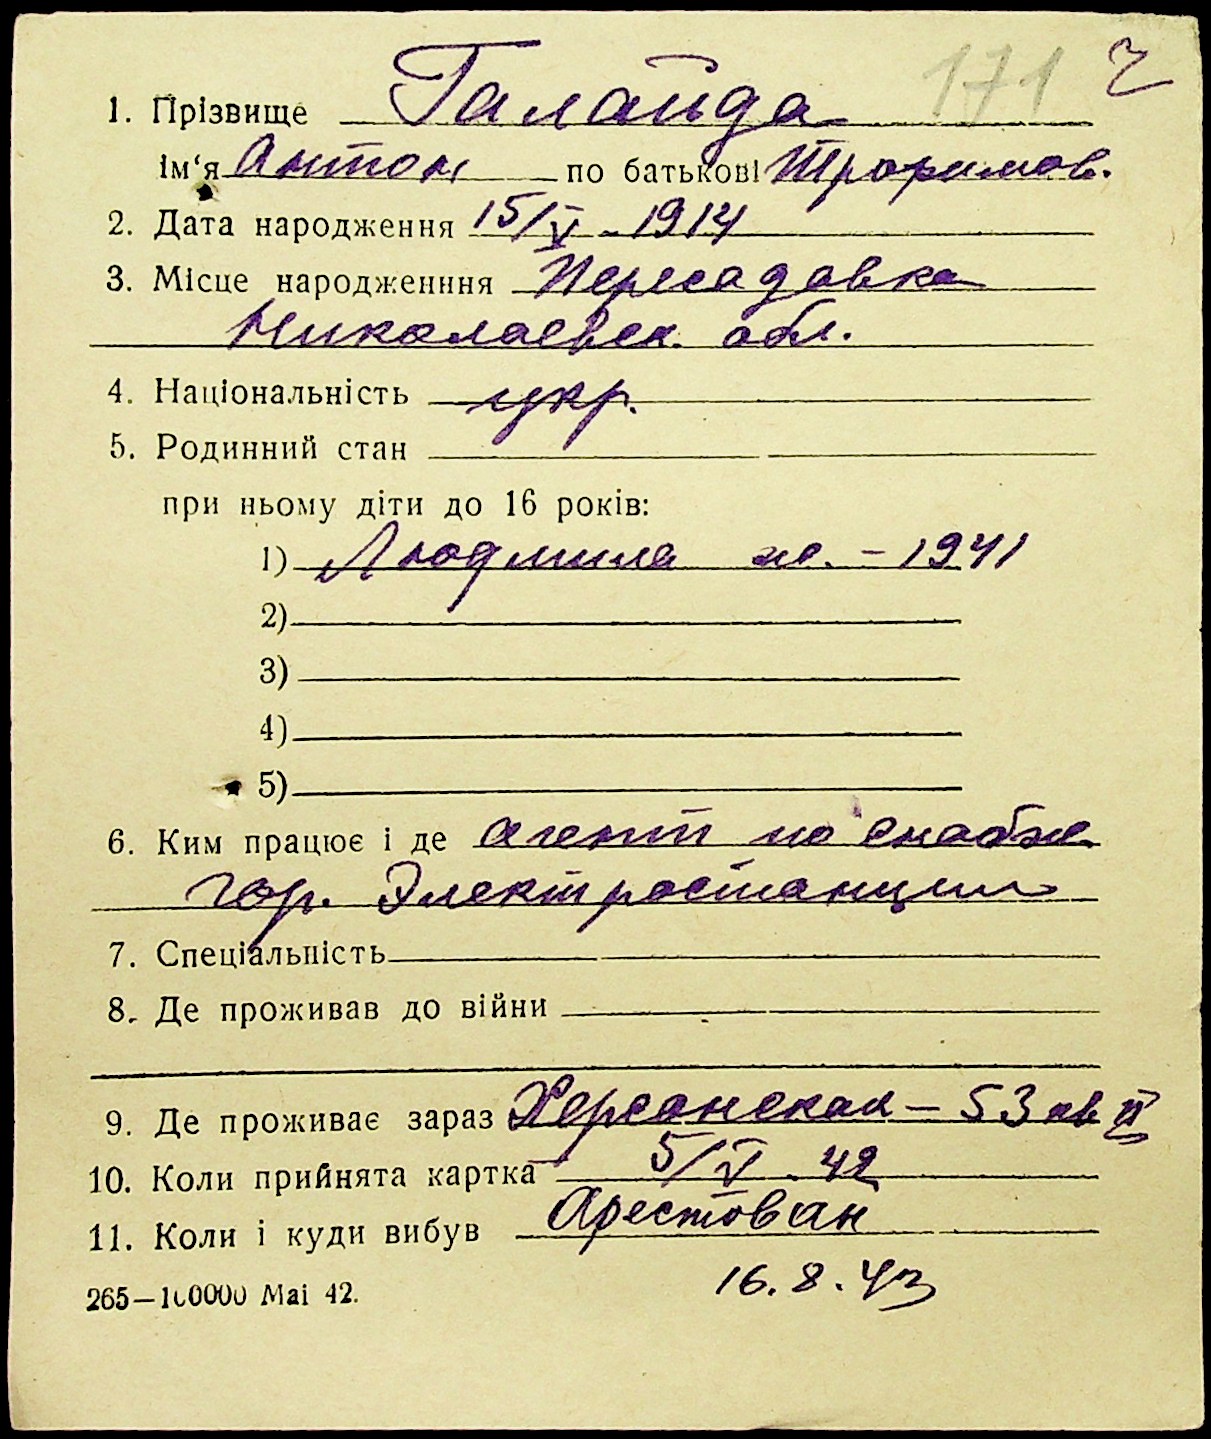 171 Ч
1. Прізвище Галайда
ім‘я Антон по батькові Трофимов.
2. Дата народження 15/V - 1914
3. Місце народженння Пересадовка
Николаевск. обл.
4. Національність укр.
5. Родинний стан
при ньому діти до 16 років:
1) Людмила ж. - 1941
2)
3)
4)
5)
6. Ким працює і де агент по снабж
гор. Электростанции
7. Спеціальність
8. Де проживав до війни
9. Де проживає зараз Херсонская - 53 кв II
10. Коли прийнята картка 5/V. 42
11. Коли і куди вибув Арестован
16.8.43
265—100000 Mai 42.